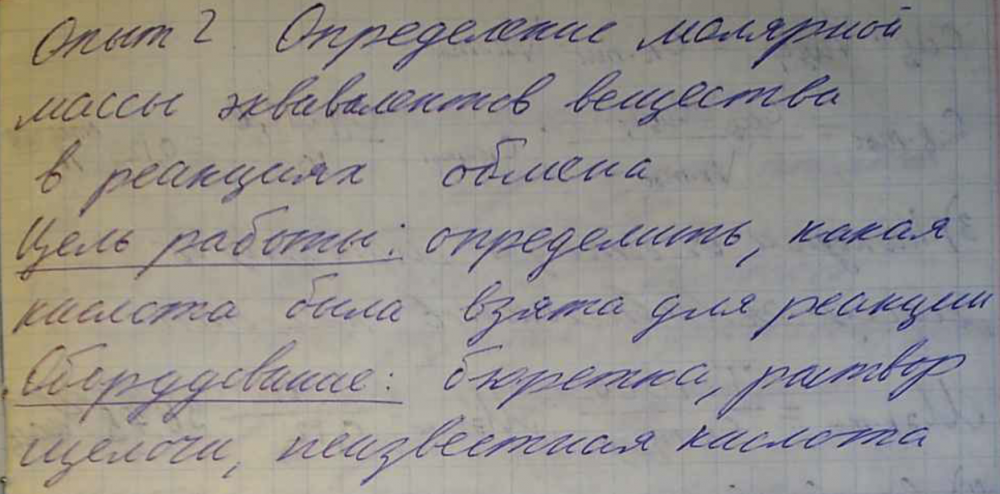 Опыт 2 Определение молярной
массы эквивалентов вещества
в реакциях обмена
Цель работы: определить, какая
кислота была взята для реакции
Оборудование: бюретка, раствор
щелочи, неизвестная кислота